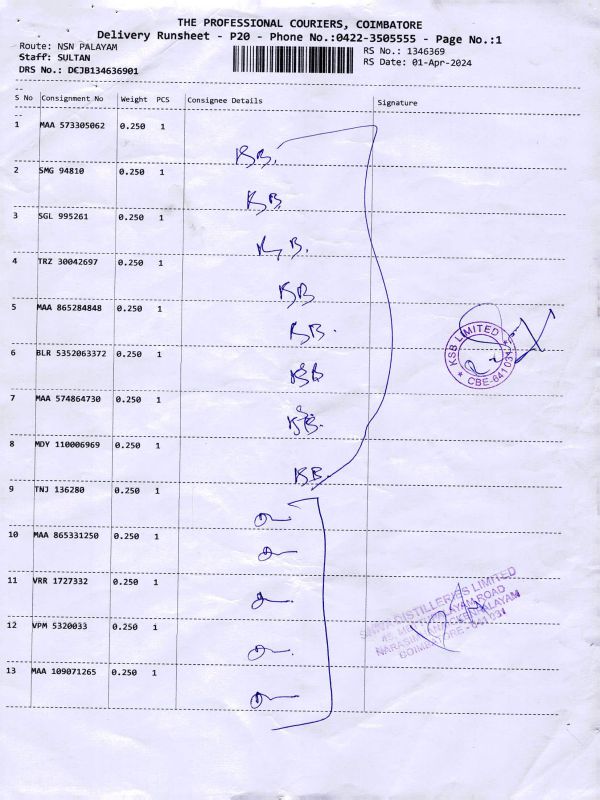 THE PROFESSIONAL COURIERS, COIMBATORE
Delivery Runsheet - P20 - Phone No.:0422-3505555 - Page No.:1
Route: NSN PALAYAM
RS No.: 1346369
Staff: SULTAN
RS Date: 01-Apr-2024
DRS No.: DCJB134636901
S No Consignment No Weight PCS Consignee Details Signature
1 MAA 573305062 0.250 1
KB.
2 SMG 94810 0.250 1
KB
3 SGL 995261 0.250 1
KB.
4 TRZ 30042697 0.250 1
KB
5 MAA 865284848 0.250 1
KB.
KSB LIMITED
* CBE-641031 *
6 BLR 5352063372 0.250 1
KB
7 MAA 574864730 0.250 1
KB.
8 MDY 110006969 0.250 1
KB
9 TNJ 136280 0.250 1
10 MAA 865331250 0.250 1
11 VRR 1727332 0.250 1
DISTILLERIES LIMITED
ROAD
PALAYAM
COIMBATORE - 641031
12 VPM 5320033 0.250 1
13 MAA 109071265 0.250 1